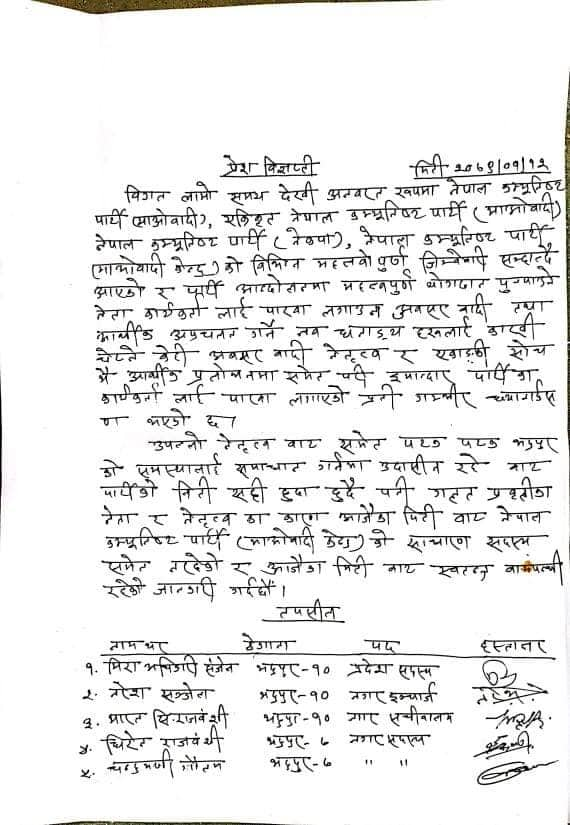 प्रेश विज्ञप्ती मिती २०७९/०१/१२
विगत लामो समय देखी अनवरत रुपमा नेपाल कम्युनिष्ट
पार्टी (माओवादी), एकिकृत नेपाल कम्युनिष्ट पार्टी (माओवादी)
नेपाल कम्युनिष्ट पार्टी (नेकपा), नेपाल कम्युनिष्ट पार्टी
(माओवादी केन्द्र) को विभिन्न महत्वोपुर्ण जिम्बेवारी सम्हाल्दै
आएको र पार्टी आन्दोलनमा महत्वपुर्ण योगदान पुर्‍याउने
नेता कार्यकर्ता लाई पाखा लगाउन अवसर वादी तथा
आर्थीक अपचलन गर्ने नव धनाड्य हरुलाई काखी
च्येप्ने केही अवसर वादी नेतृत्व र एकाङ्की सोच
मै आर्थीक प्रलोभनमा समेत परी इमान्दार पार्टी का
कार्यकर्ता लाई पाखा लगाएको प्रती गम्भीर
ण भएको छ।
उपल्लो नेतृत्व बाट समेत पटक पटक भद्रपुर
को समस्यालाई समाधान गर्नमा उदासीन रहे बाट
पार्टीको निती सही हुदा हुदै पनी गलत प्रवृतीका
नेता र नेतृत्व का कारण आजैका मिती बाट नेपाल
कम्युनिष्ट पार्टी (माओवादी केन्द्र) को साधारण सदस्य
समेत नरहेको र आजैका मिती बाट स्वतन्त्र वामपन्थी
रहेको जानकारी गर्दछौं।
तपसील
नामथर ठेगाना पद हस्ताक्षर
१. मिरा अधिकारी भद्रपुर-१० प्रदेश सदस्य
२. नरेश भद्रपुर-१० नगर इन्चार्ज नरेश
३. भारत सि. राजवंशी भद्रपुर-१० नगर सचीवालय
४. धिरेन राजवंशी भद्रपुर- ७ नगर सदस्य
५. चन्द्रमणी गौतम भद्रपुर-७ " "